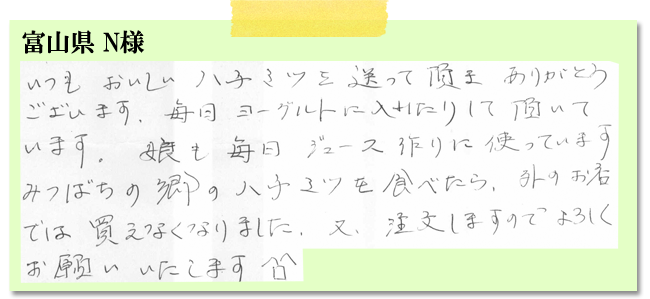 富山県 N様
いつも おいしい ハチミツを 送って頂き ありがとう
ございます。毎日 ヨーグルトに入れたりして 頂いて
います。娘も 毎日 ジュース作りに 使っています
みつばちの郷のハチミツを食べたら、外のお店
では 買えなくなりました。又、注文しますので よろしく
お願い いたします